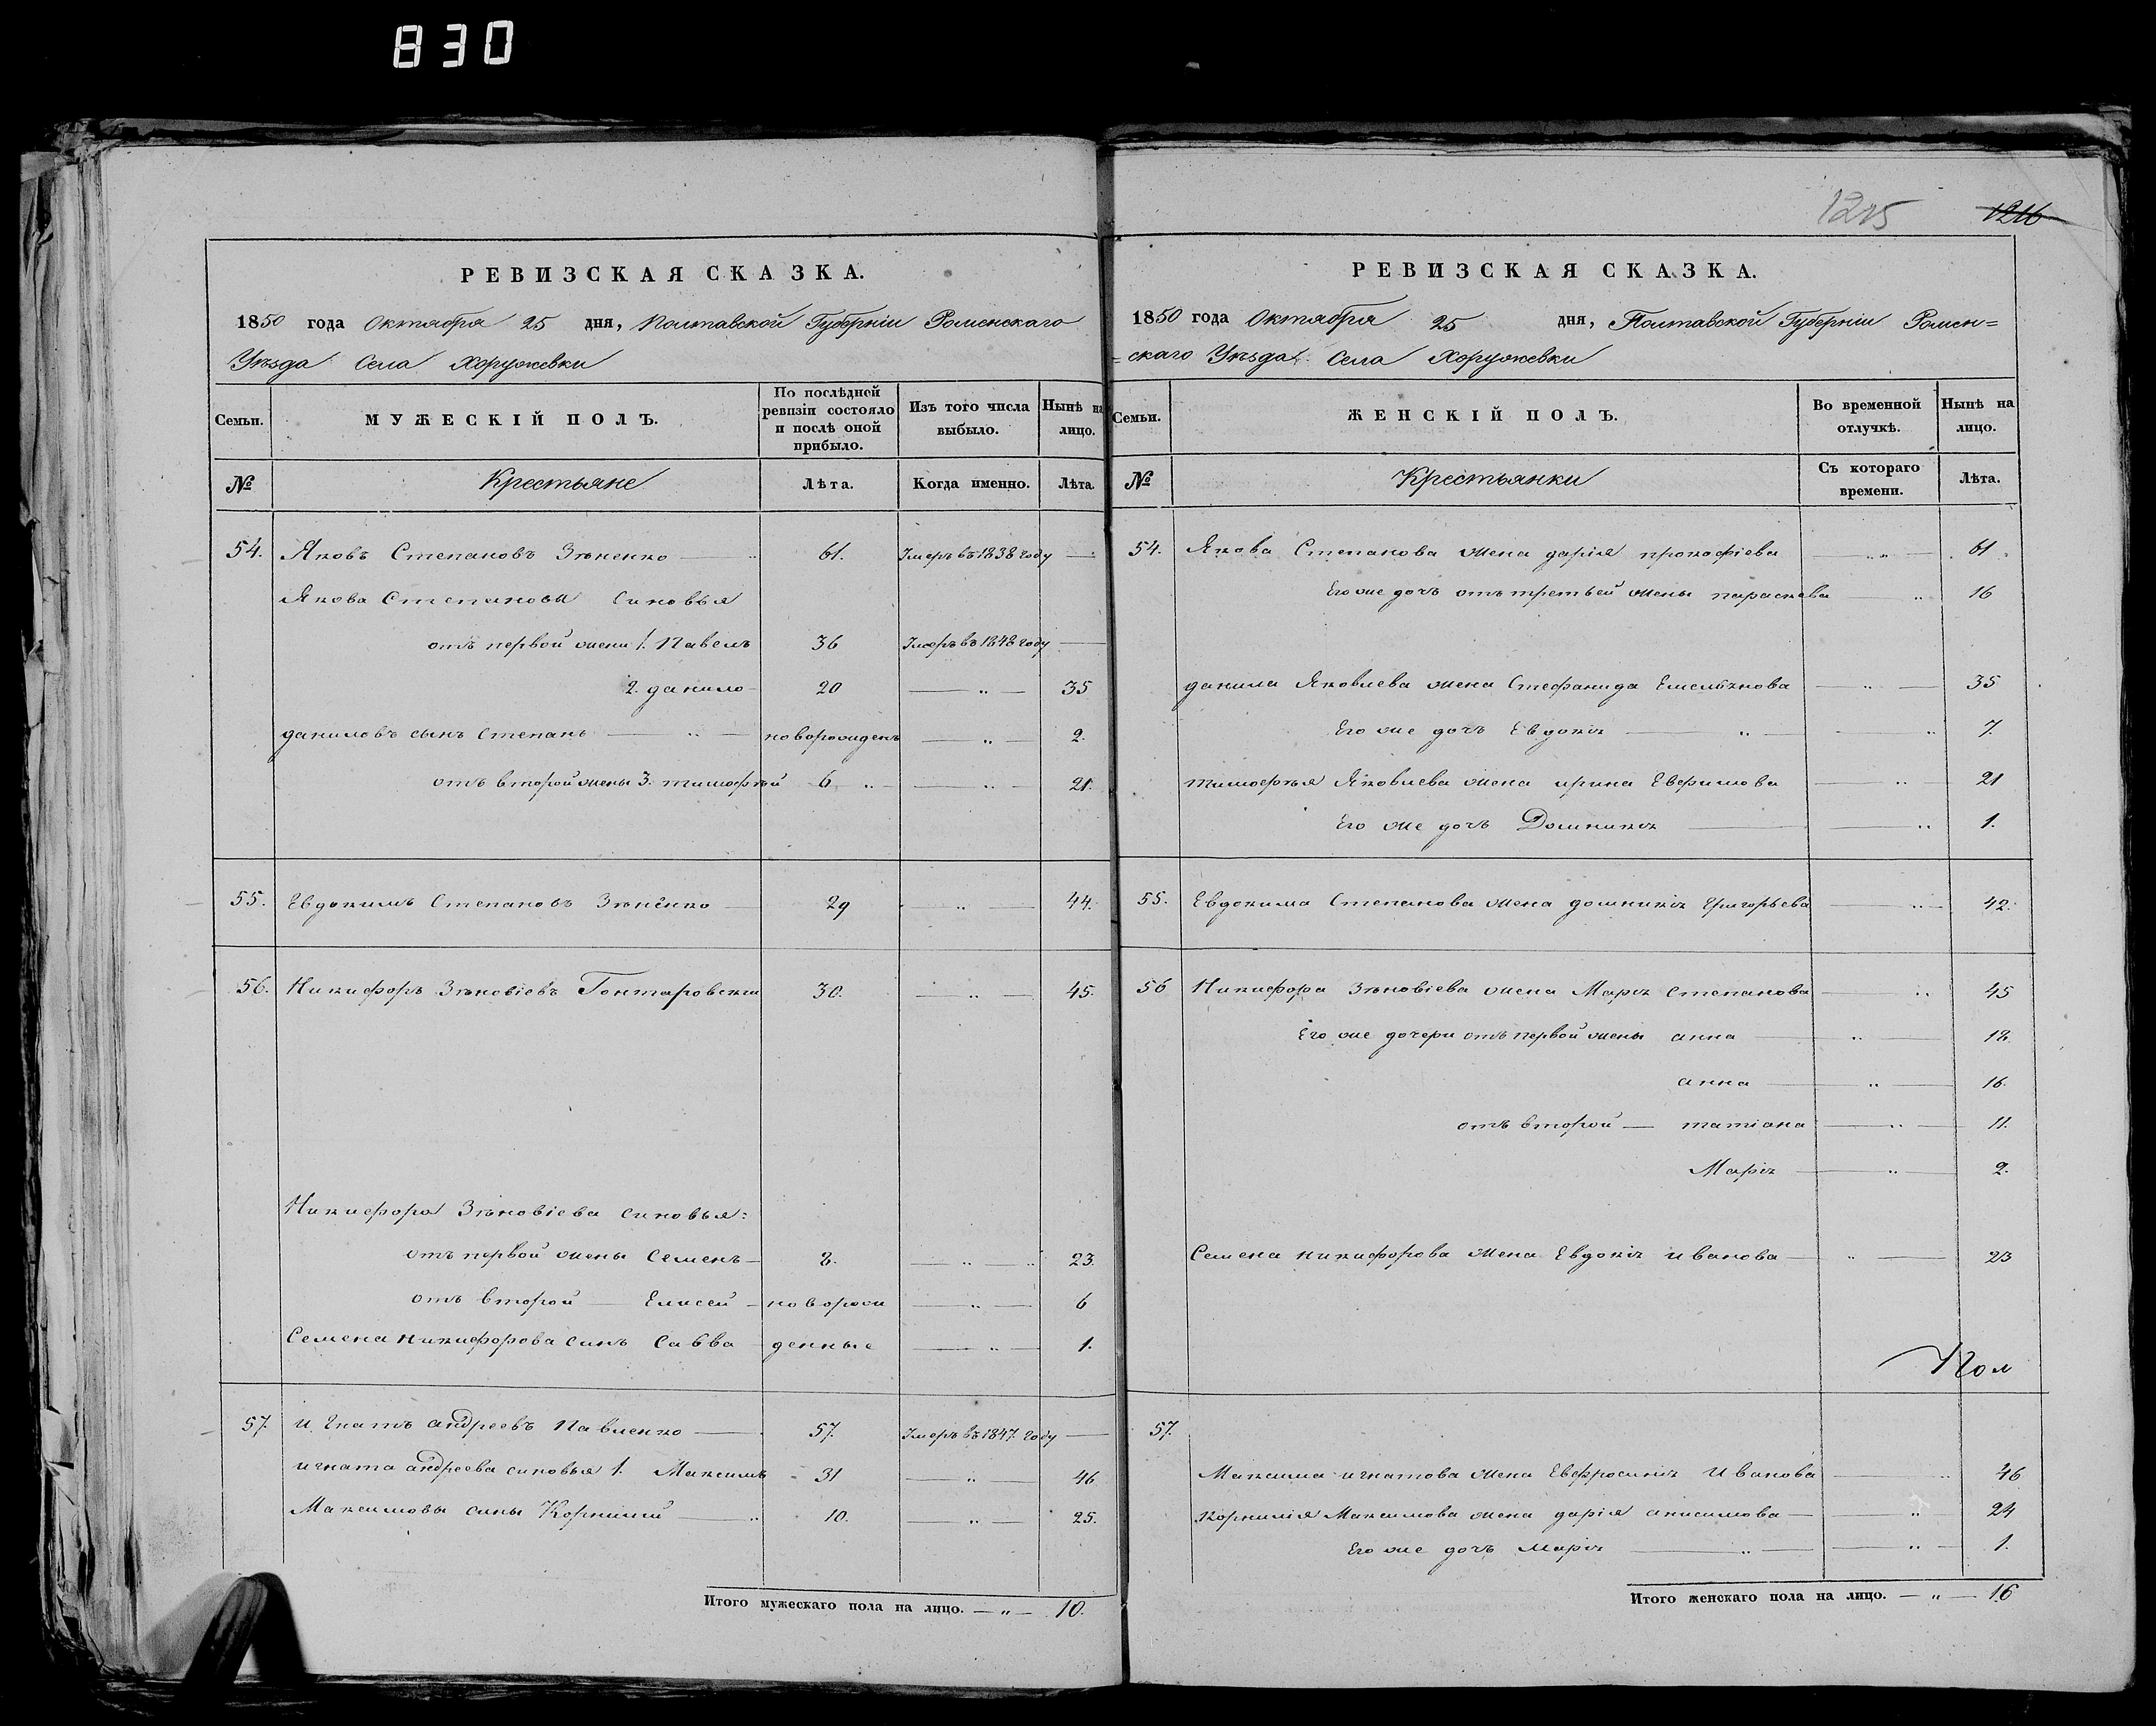 830
1215 1216
РЕВИЗСКАЯ СКАЗКА.
1850 года Октября 25 дня, Полтавской Губерніи Роменскаго
Уѣзда Села Хоружевки
Семьи. МУЖЕСКІЙ ПОЛЪ. По послѣдней ревизіи состояло и послѣ оной прибыло. Изъ того числа выбыло. Нынѣ на лицо.
№ Крестьяне Лѣта. Когда именно. Лѣта.
54. Яковъ Степановъ Зѣненко — 61. Умеръ въ 1838 году —
Якова Степановы Синовья
отъ первой жени 1. Павелъ 36 Умеръ въ 1848 году —
2. данило 20 — „ — 35
даниловъ сынъ Степанъ — „ — новорожденъ — „ — 2.
отъ второй жены 3. тимофѣй 6 „ — „ — 21.
55. Евдокимъ Степановъ Зѣненко — 29 — „ — 44.
56. Никифоръ Зѣновіевъ Гонтаровскии 30. — „ — 45.
Никифора Зѣновіева синовья:
отъ первой жены Семенъ — 8. — „ — 23.
отъ второй — Елисей — новорож — „ — 6
Семена никифорова синъ Савва денные — „ — 1.
57. игнатъ андреевъ Павленко — 57. Умеръ въ 1847 году —
игната андреева синовья 1. Максимъ 31 — „ — 46
Максимовы сины Корнилий — „ 10. — „ — 25.
Итого мужескаго пола на лицо. — „ — 10.
РЕВИЗСКАЯ СКАЗКА.
1850 года Октября 25 дня, Полтавской Губерніи Ромен=
=скаго Уѣзда Села Хоружевки
Семьи. ЖЕНСКІЙ ПОЛЪ. Во временной отлучкѣ. Нынѣ на лицо.
№ Крестьянки Съ котораго времени. Лѣта.
54. Якова Степанова жена дарія прокофіева — „ — 61
Его же дочь отъ третьей жены параскева — „ 16
данила Яковлева жена Стефанида Емельянова — „ — 35
Его же дочь Евдокія — „ — „ 7.
тимофѣя Яковлева жена ирина Евфимова — „ 21
Его же дочь Домникія — „ 1.
55. Евдокима Степанова жена домникія Григорьева — „ — 42.
56 Никифора Зѣновіева жена Марія Степанова — „ 45
Его же дочери отъ первой жены анна — „ — 18
анна — „ — 16.
отъ второй — татіана — „ — 11.
Марія — „ — 2.
Семена никифорова жена Евдокія иванова — „ — 23
Пол
57.
Максима игнатова жена Евфросинія Иванова — „ 46
Корнилія Максимова жена дарія анисимова — „ 24
Его же дочь Марія — „ — „ — 1.
Итого женскаго пола на лицо. — „ — 16